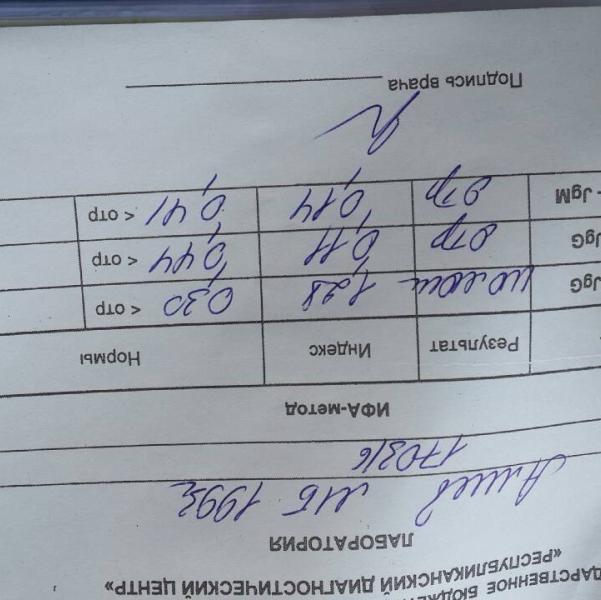 ДАРСТВЕННОЕ БЮДЖЕТ
«РЕСПУБЛИКАНСКИЙ ДИАГНОСТИЧЕСКИЙ ЦЕНТР»
ЛАБОРАТОРИЯ
МБ 199
170316
ИФА-метод
Результат Индекс Нормы
JgG 1,28 0,30 < отр
JgG отр 0,11 0,44 < отр
- JgM отр 0,14 0,41 < отр
Подпись врача